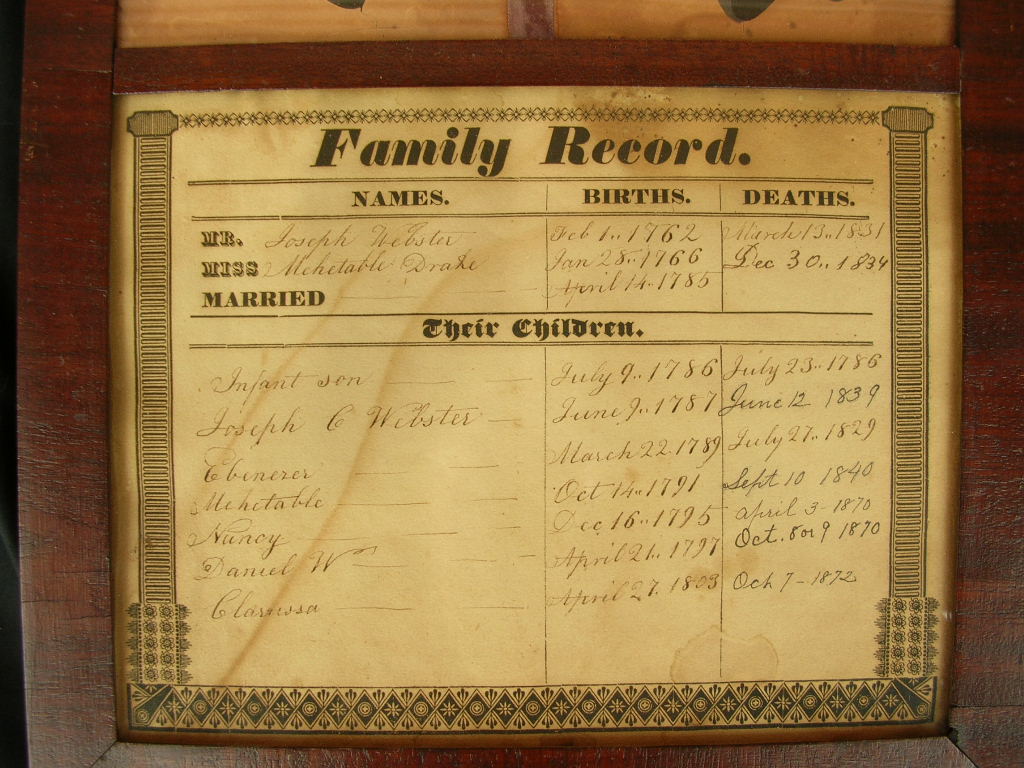 Family Record.
NAMES. BIRTHS. DEATHS.
MR. Joseph Webster Feb 1.. 1762 March 13.. 1831
MISS Mehetable Drake Jan 28.. 1766 Dec 30.. 1834
MARRIED April 14.. 1785
Their Children.
Infant son July 9.. 1786 July 23.. 1786
Joseph C Webster June 9.. 1787 June 12 1839
Ebenezer March 22 1789 July 27.. 1829
Mehetable Oct 14.. 1791 Sept 10 1840
Nancy Dec 16.. 1795 april 3 - 1870
Daniel W April 21.. 1797 Oct. 8 or 9 1870
Clarissa April 27. 1803 Oct 7 - 1872